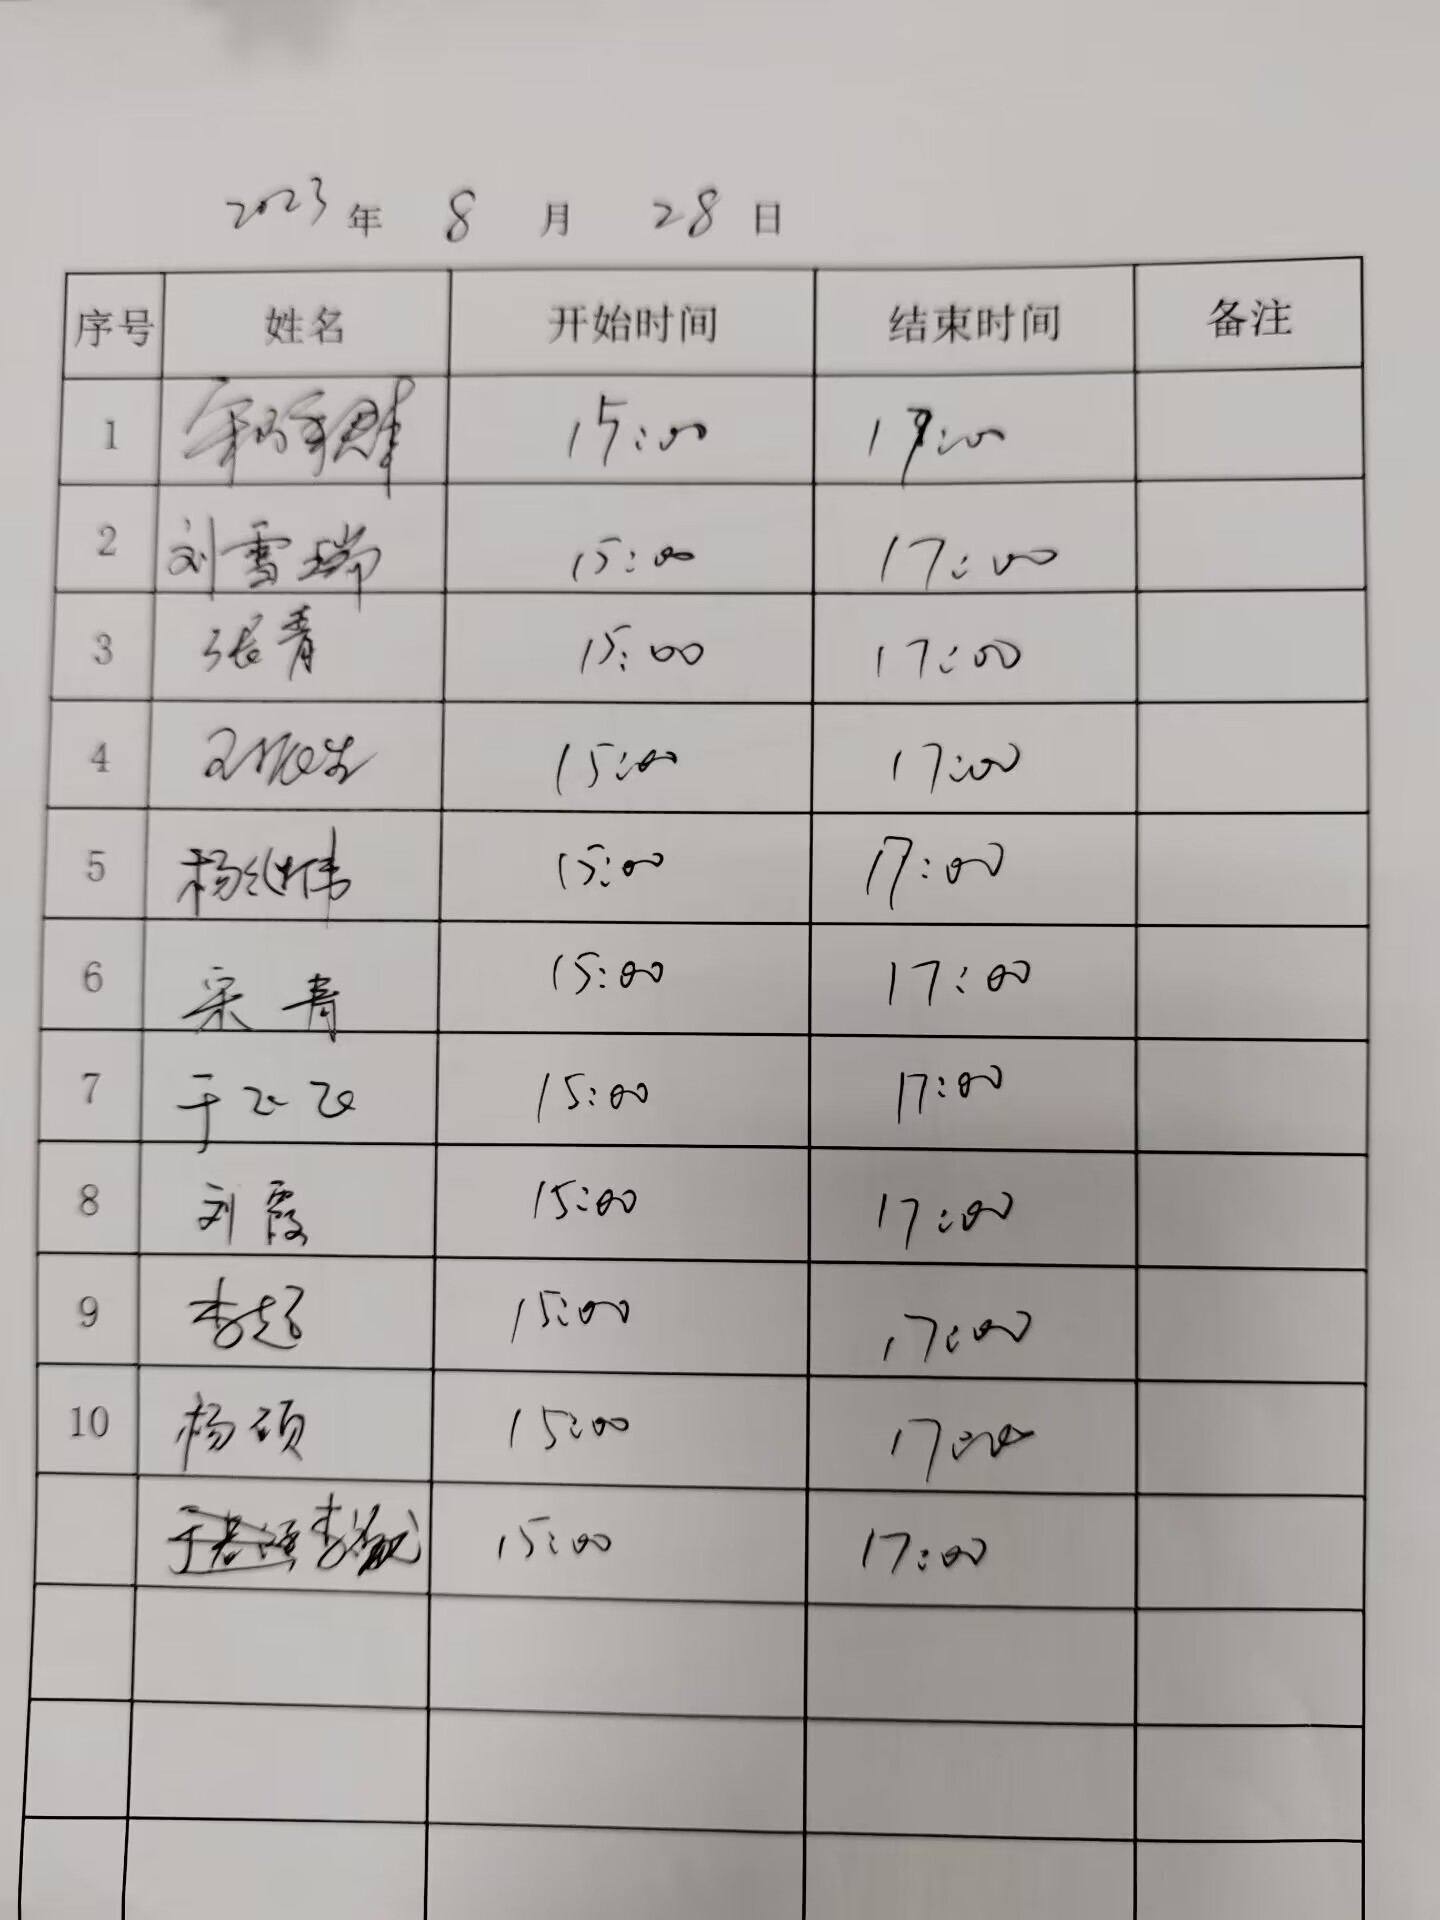 2023年 8月 28日
序号 姓名 开始时间 结束时间 备注
1 15:00 17:00
2 刘雪瑞 15:00 17:00
3 张青 15:00 17:00
4 15:00 17:00
5 杨继伟 15:00 17:00
6 宋青 15:00 17:00
7 于飞飞 15:00 17:00
8 刘霞 15:00 17:00
9 李超 15:00 17:00
10 杨硕 15:00 17:00
15:00 17:00